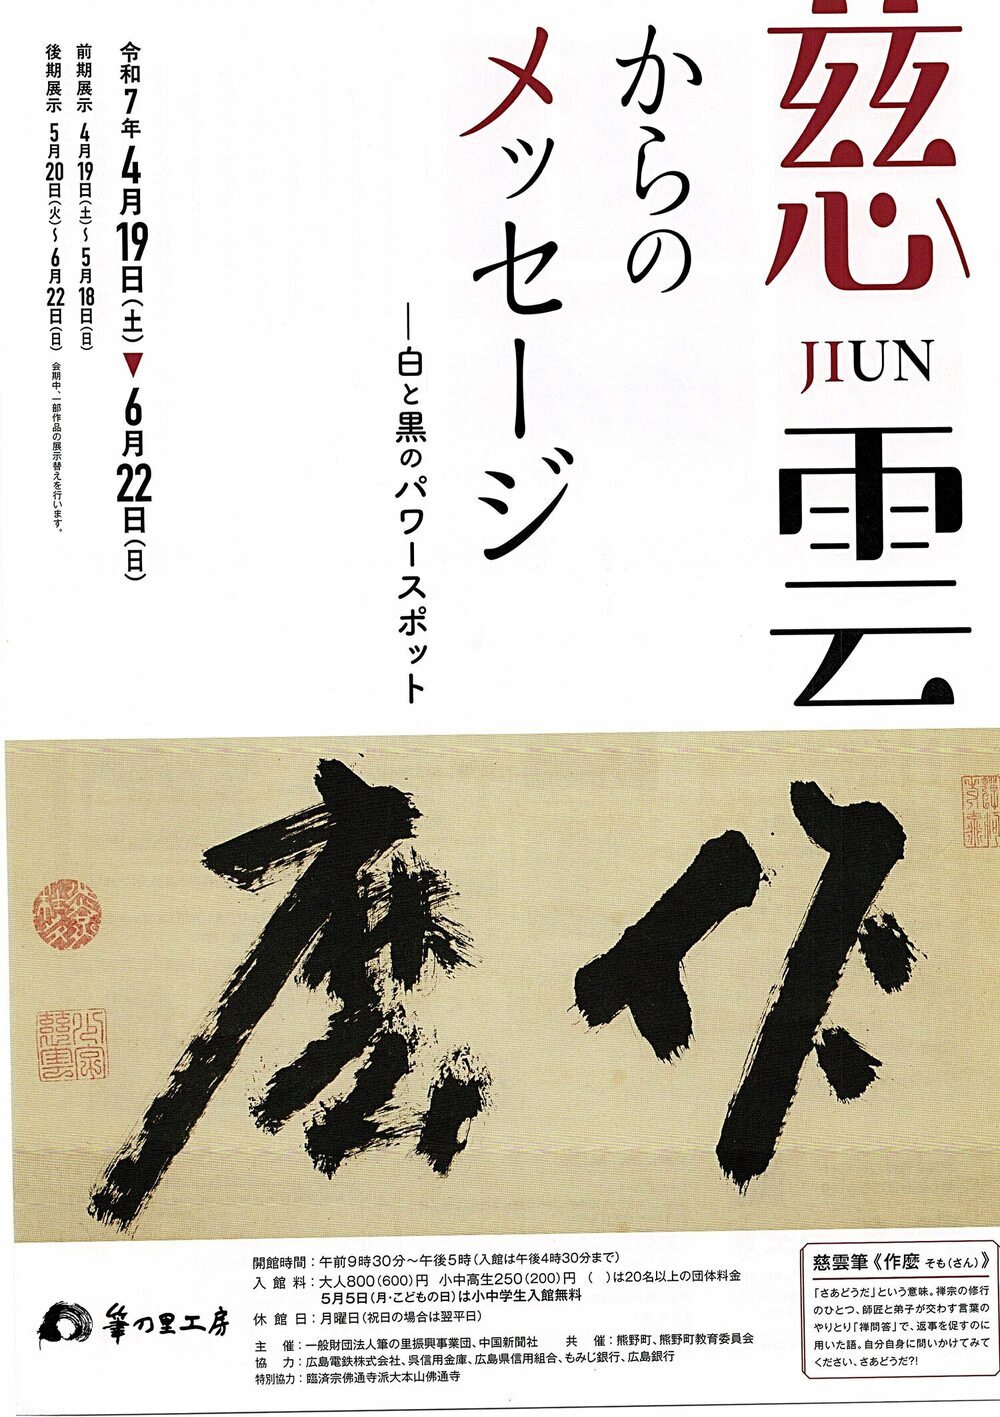 慈雲
JIUN
からの
メッセージ
―白と黒のパワースポット
令和7年4月19日(土)▼6月22日(日)
前期展示 4月19日(土)〜5月18日(日)
後期展示 5月20日(火)〜6月22日(日) 会期中、一部作品の展示替えを行います。
作麼
慈雲筆《作麼 そも(さん)》
「さあどうだ」という意味。禅宗の修行
のひとつ、師匠と弟子が交わす言葉の
やりとり「禅問答」で、返事を促すのに
用いた語。自分自身に問いかけてみて
ください、さあどうだ?!
筆の里工房
開館時間:午前9時30分〜午後5時(入館は午後4時30分まで)
入館料:大人800(600)円 小中高生250(200)円 ( )は20名以上の団体料金
5月5日(月・こどもの日)は小中学生入館無料
休館日:月曜日(祝日の場合は翌平日)
主催:一般財団法人筆の里振興事業団、中国新聞社 共催:熊野町、熊野町教育委員会
協力:広島電鉄株式会社、呉信用金庫、広島県信用組合、もみじ銀行、広島銀行
特別協力:臨済宗佛通寺派大本山佛通寺